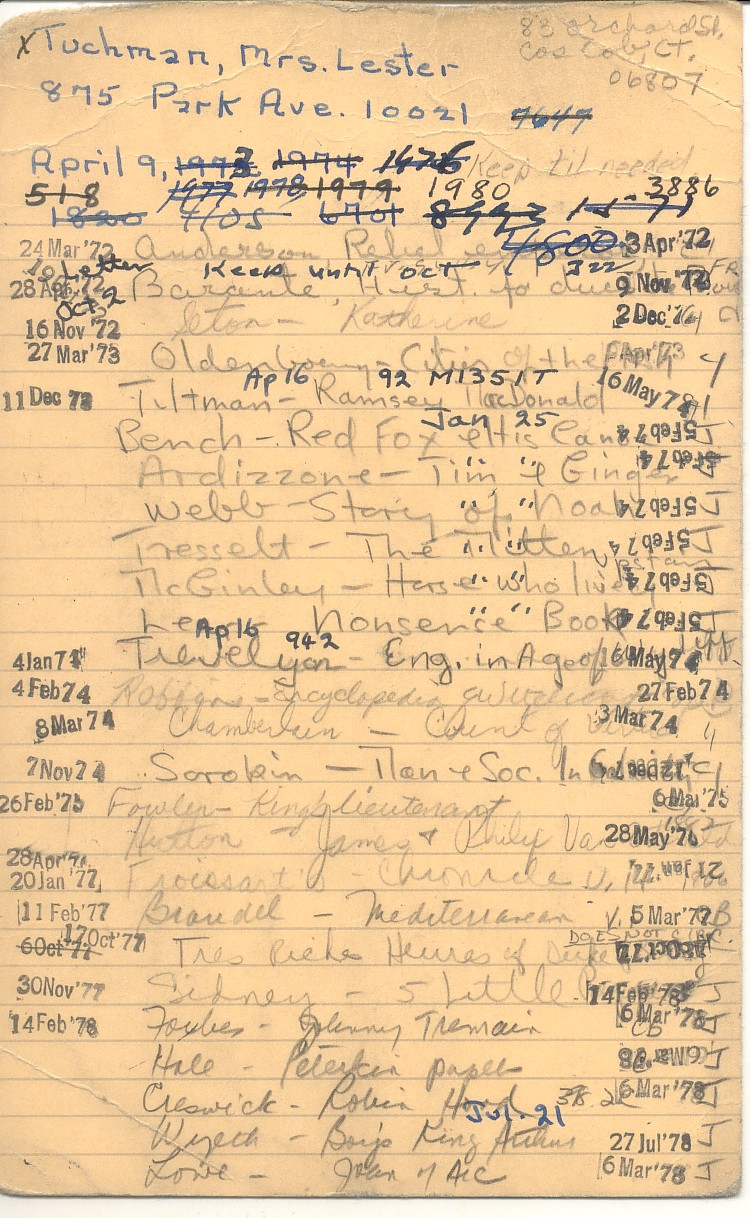 83 Orchard St.
x Tuchman, Mrs. Lester
Cos Cob, Ct.
06807
875 Park Ave. 10021 7647
April 9, 1973 1974 1976 Keep til needed
518 1977 1978 1979 1980 3886
1820 4105 6701 8993
4800
24 Mar '72 Anderson Relief 3 Apr '72
Letter Keep until Oct 322
28 Apr '72 Barante Hist 9 Nov '72
Oct 2
16 Nov '72 Seton - Katherine 2 Dec '72
27 Mar '73 Oldenbourg - Cities of the Apr '73 4
Ap 16 92 M1351T
11 Dec 73 Tiltman - Ramsey MacDonald 16 May 74
Jan 25
Bench - Red Fox & His Canoe 5 Feb 74 J
Ardizzone - Tim & Ginger 5 Feb 74 J
Webb - Story of Noah 5 Feb 74 J
Tresselt - The Mitten 5 Feb 74 J
McGinley - Horse who lived upstairs 5 Feb 74 J
Lear Nonsense Book 5 Feb 74 J
Ap 16 942
4 Jan 74 Trevelyan - Eng. in Age of 16 May 74
4 Feb 74 Robbins - Encyclopedia of Witchcraft 27 Feb 74
8 Mar 74 Chamberlin - Count of 3 Mar 74
4
7 Nov 74 Sorokin - Man & Soc. In Calamity
26 Feb '75 Fowler - King's lieutenant 6 Mar '75
Hutton - James & Philip Van 28 May '76
28 Apr '76
20 Jan '77 Froissart's - Chronicle V. 21 Jan '77
11 Feb '77 Braudel - Mediterranean V. 5 Mar '77
DOES NOT CIRC.
6 Oct '77 17 Oct '77 Tres Riches Heures of Duke
30 Nov '77 Sidney - 5 Little 14 Feb '78 J
14 Feb '78 Forbes - Johnny Tremain 6 Mar '78 J
Hale - Peterkin papers 6 Mar '78 J
Creswick - Robin Hood 6 Mar '78 J
Jul. 21
Wyeth - Boys King Arthur 27 Jul '78 J
Lowe - Joan of Arc 6 Mar '78 J